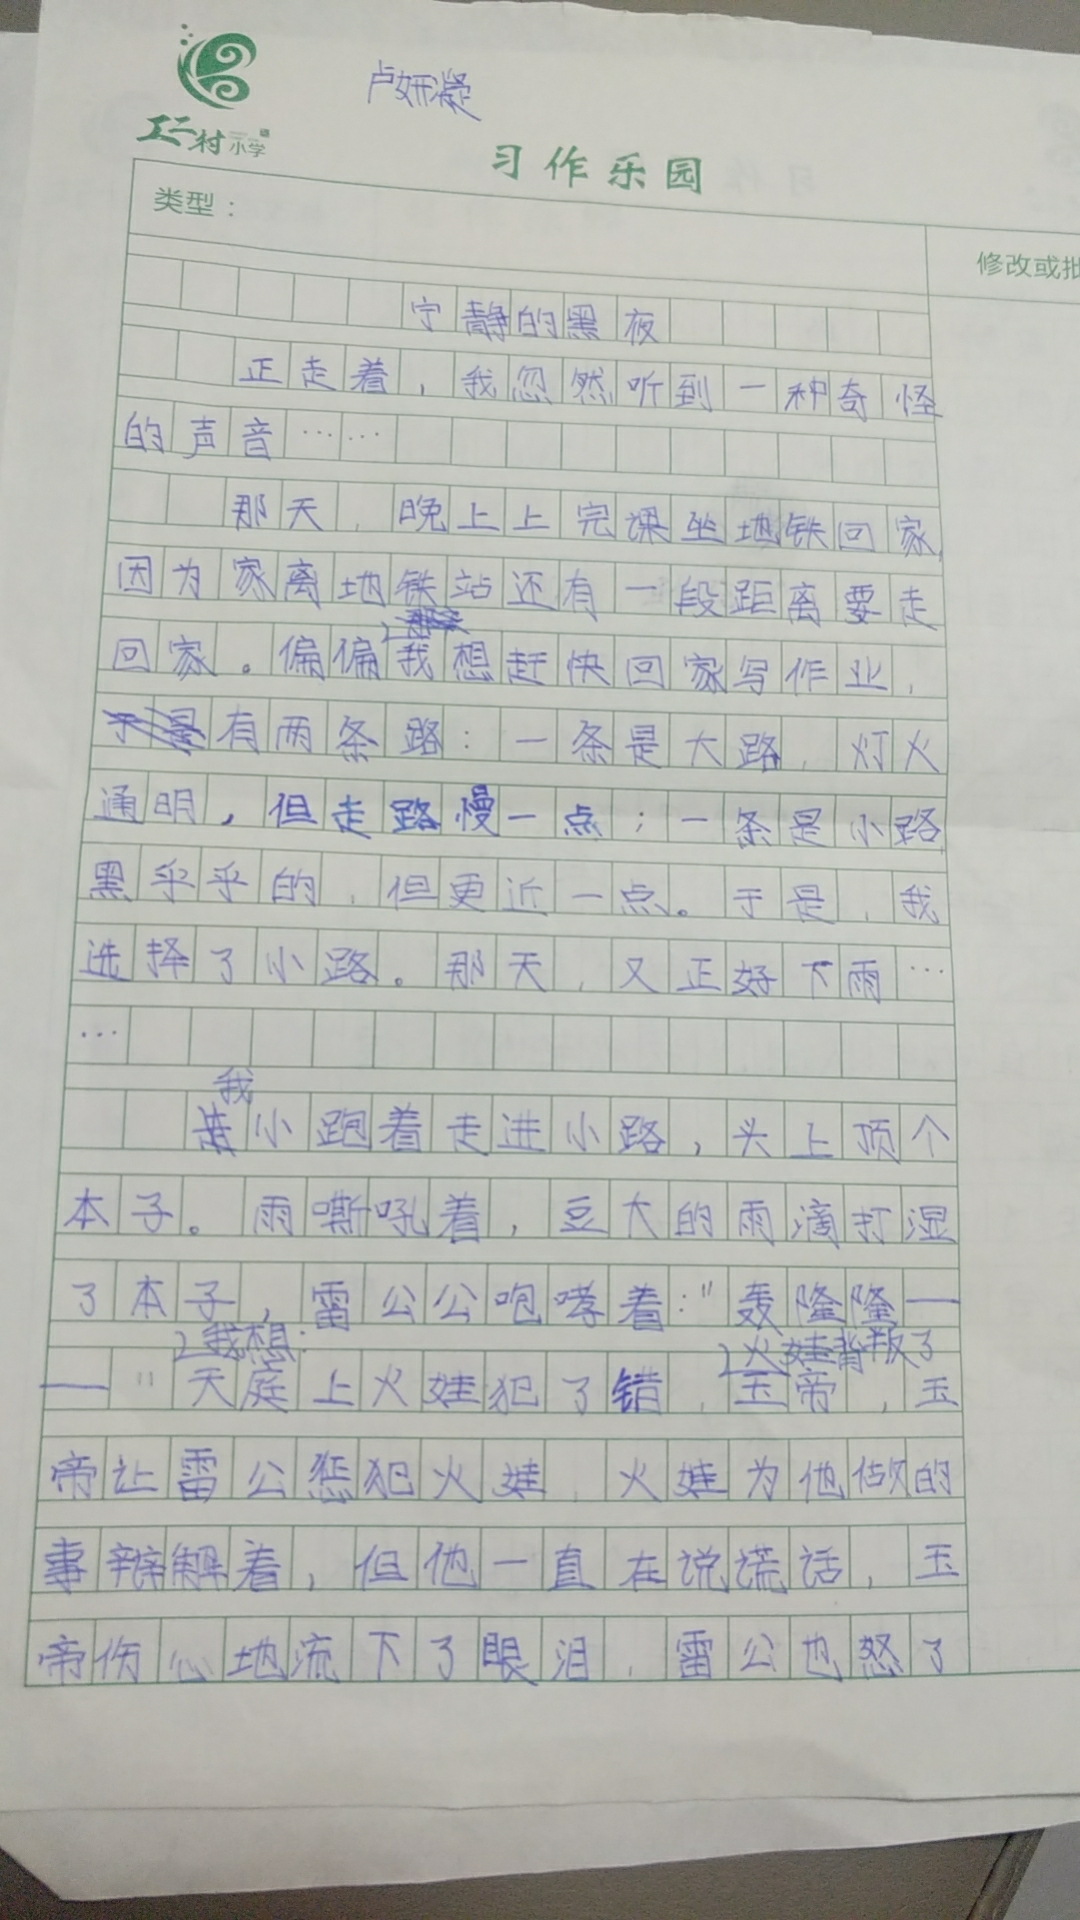 卢妍凝
工二村小学
习作乐园
类型：
修改或批
宁静的黑夜
正走着，我忽然听到一种奇怪
的声音……
那天，晚上上完课坐地铁回家，
因为家离地铁站还有一段距离要走
回家。偏偏我想赶快回家写作业，
有两条路：一条是大路，灯火
通明，但走路慢一点；一条是小路，
黑乎乎的，但更近一点。于是，我
选择了小路。那天，又正好下雨…
…
我
小跑着走进小路，头上顶个
本子。雨嘶吼着，豆大的雨滴打湿
了本子，雷公公咆哮着："轰隆隆—
我想： 火娃背叛了
—"天庭上火娃犯了错，玉帝，玉
帝让雷公惩犯火娃，火娃为他做的
事辩解着，但他一直在说谎话，玉
帝伤心地流下了眼泪，雷公也怒了